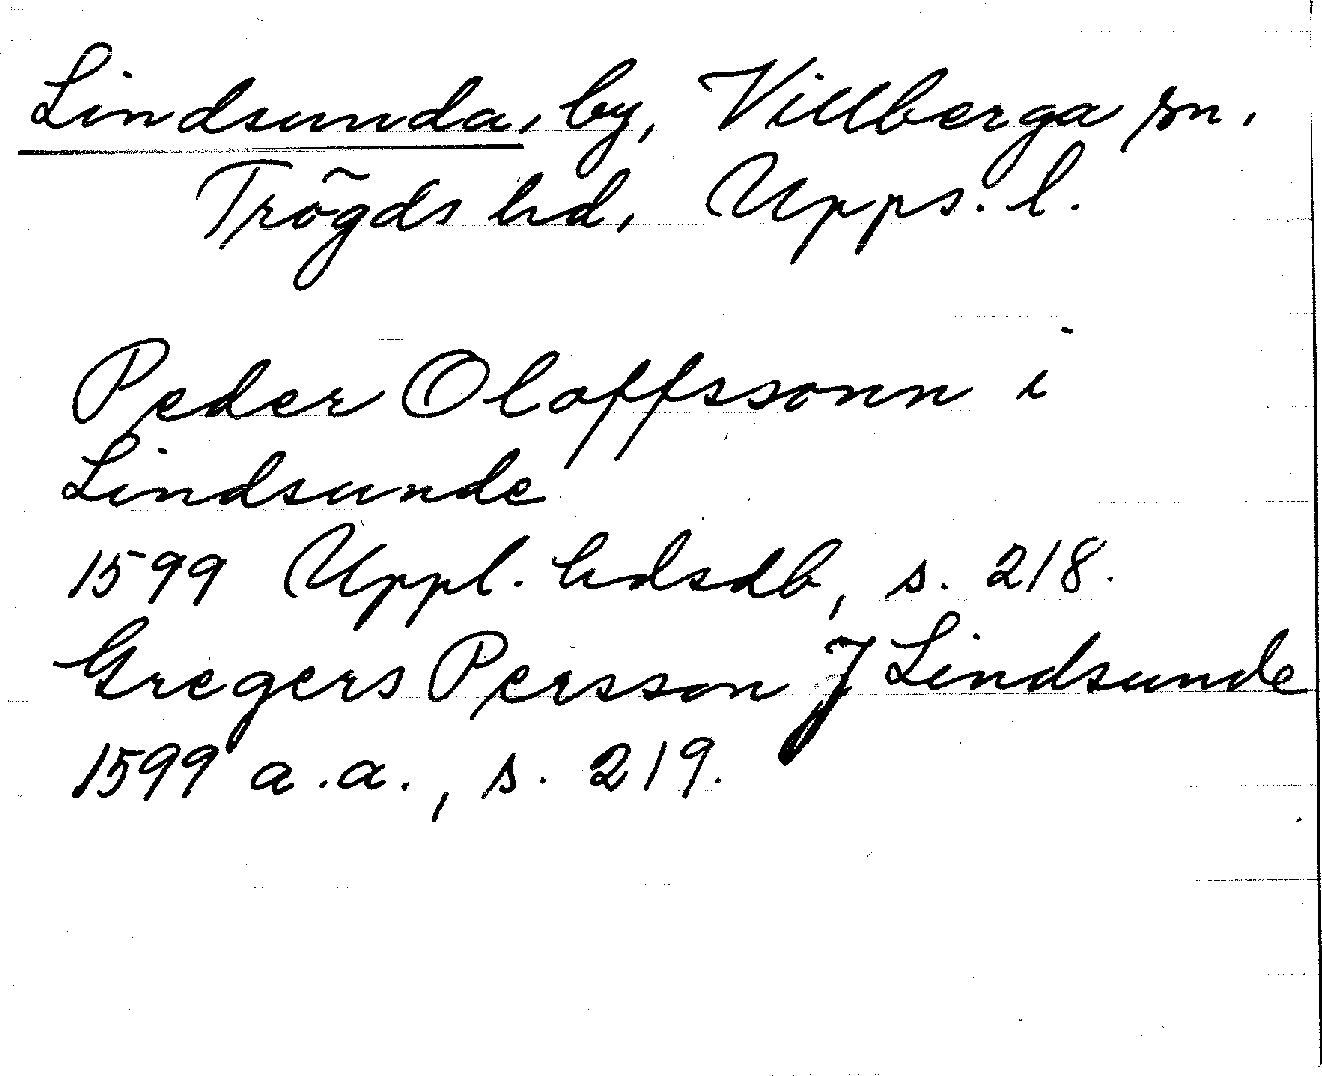 Lindsunda, by, Villberga sn.
Trögds hd, Upps. l.
Peder Oloffssonn i
Lindsunde
1599 Uppl. hdsdb, s. 218.
Gregers Persson J Lindsunde
1599 a.a., s. 219.